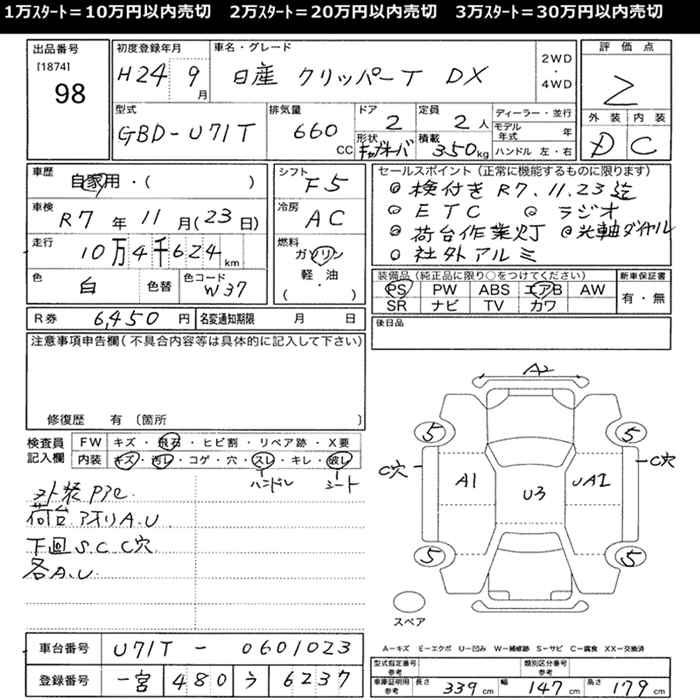 1万ｽﾀｰﾄ＝10万円以内売切　2万ｽﾀｰﾄ＝20万円以内売切　3万ｽﾀｰﾄ＝30万円以内売切
出品番号
[1874]
98
初度登録年月
H24 9月
車名・グレード
日産 クリッパーT DX
2WD・4WD
評価点
2
外装 内装
D C
型式
GBD-U71T
排気量
660 CC
ドア
2
定員
2人
形状
キャブオーバ
積載
350kg
ディーラー・並行
モデル年式 年
ハンドル 左・右
車歴
自家用・( )
車検
R7年11月(23日)
走行
10万4千624km
色
白
色替
色コード
W37
シフト
F5
冷房
AC
燃料
ガソリン
軽・油
( )
セールスポイント(正常に機能するものに限ります)
◎検付きR7.11.23迄
◎ETC ◎ラジオ
◎荷台作業灯 ◎光軸ダイヤル
◎社外アルミ
装備品(純正品に限り○をつけてください)
PS PW ABS エアB AW
SR ナビ TV カワ
新車保証書
有・無
R券 6,450円
名変通知期限 月 日
後日品
注意事項申告欄(不具合内容等は具体的に記入して下さい)
修復歴 有 〔箇所 〕
検査員記入欄
FW キズ・飛石・ヒビ割・リペア跡・X要
内装 キズ・汚レ・コゲ・穴・スレ・キレ・破レ
ハンドル シート
外装P多
荷台アオリA.U
下回S.C C穴
各A.U
A2
5 5
C穴 C穴
A1 U3 UA2
5 5
スペア
A－キズ E－エクボ U－凹み W－補修跡 S－サビ C－腐食 XX－交換済
車台番号 U71T - 0601023
登録番号 一宮 480 う 6237
型式指定番号 参考
類別区分番号 参考
車庫証明用参考 長さ 339cm 幅 147cm 高さ 179cm